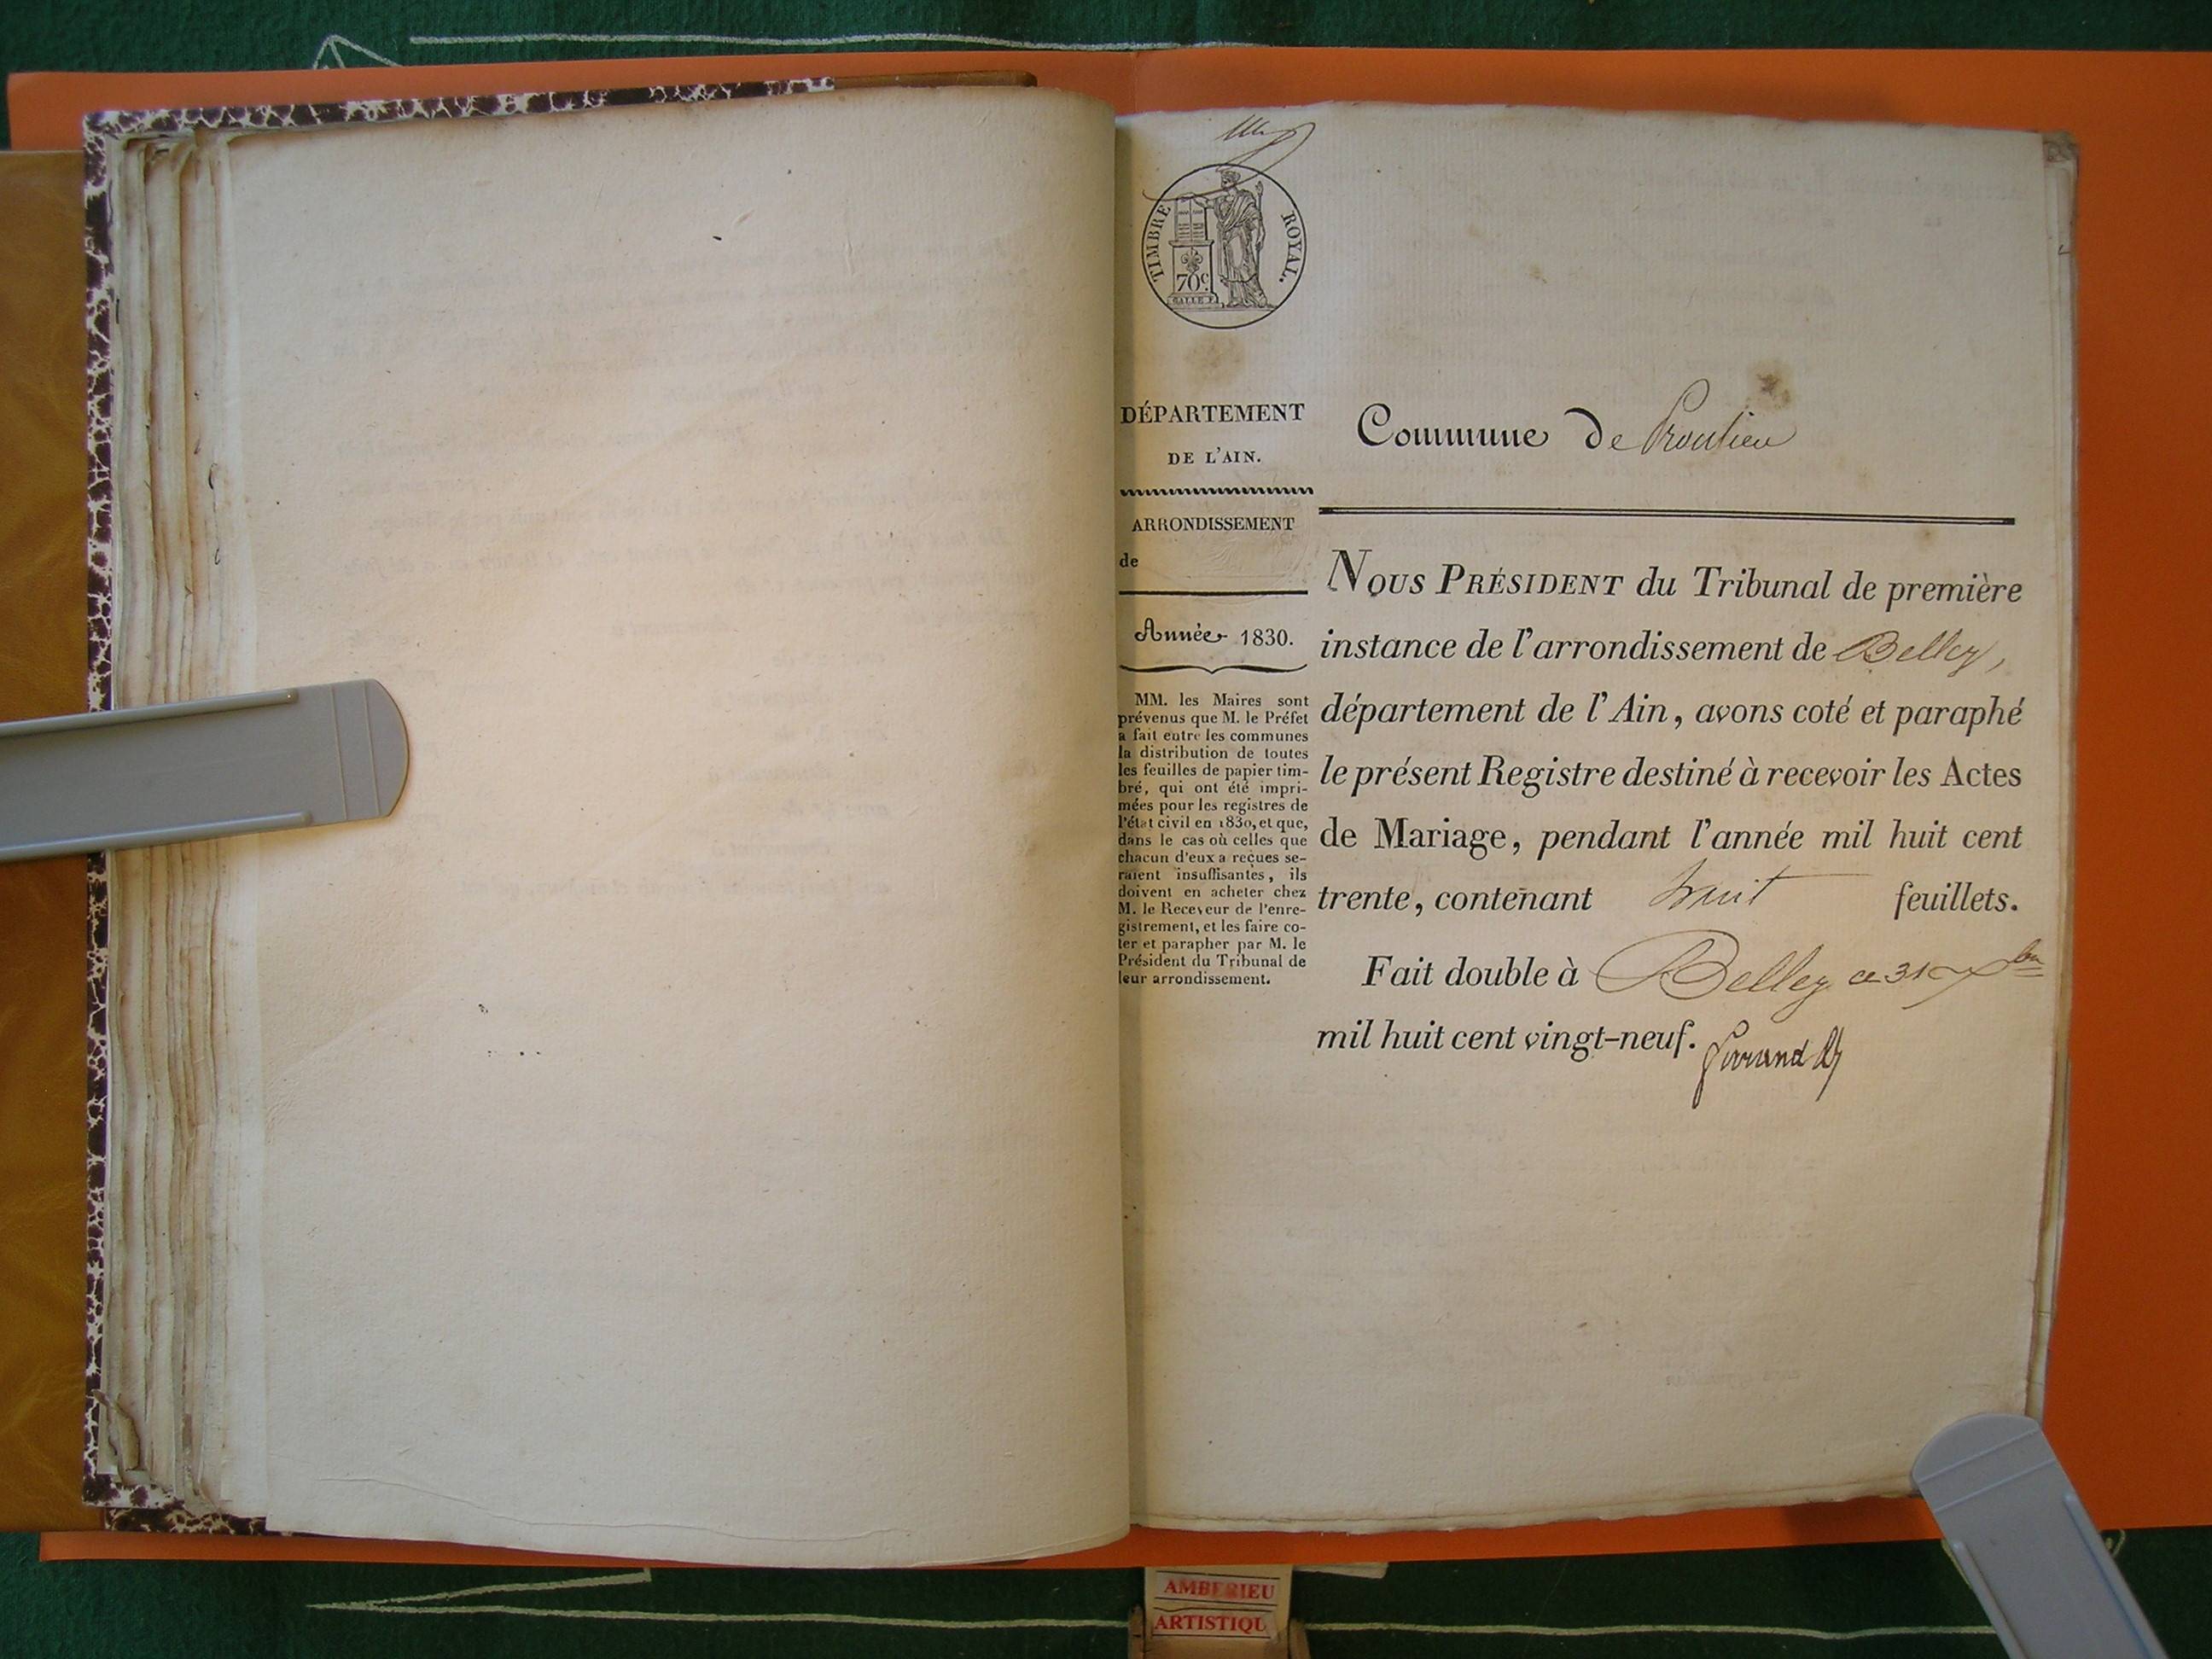 TIMBRE ROYAL.
70c.
DÉPARTEMENT
DE L'AIN.
ARRONDISSEMENT
de
Année 1830.
MM. les Maires sont
prévenus que M. le Préfet
a fait entre les communes
la distribution de toutes
les feuilles de papier tim-
bré, qui ont été impri-
mées pour les registres de
l'état civil en 1830, et que,
dans le cas où celles que
chacun d'eux a reçues se-
raient insuffisantes, ils
doivent en acheter chez
M. le Receveur de l'enre-
gistrement, et les faire co-
ter et parapher par M. le
Président du Tribunal de
leur arrondissement.
Commune de Proulieu
NOUS PRÉSIDENT du Tribunal de première
instance de l'arrondissement de Belley,
département de l'Ain, avons coté et paraphé
le présent Registre destiné à recevoir les Actes
de Mariage, pendant l'année mil huit cent
trente, contenant huit feuillets.
Fait double à Belley ce 31 Xbre
mil huit cent vingt-neuf.
AMBERIEU
ARTISTIQU